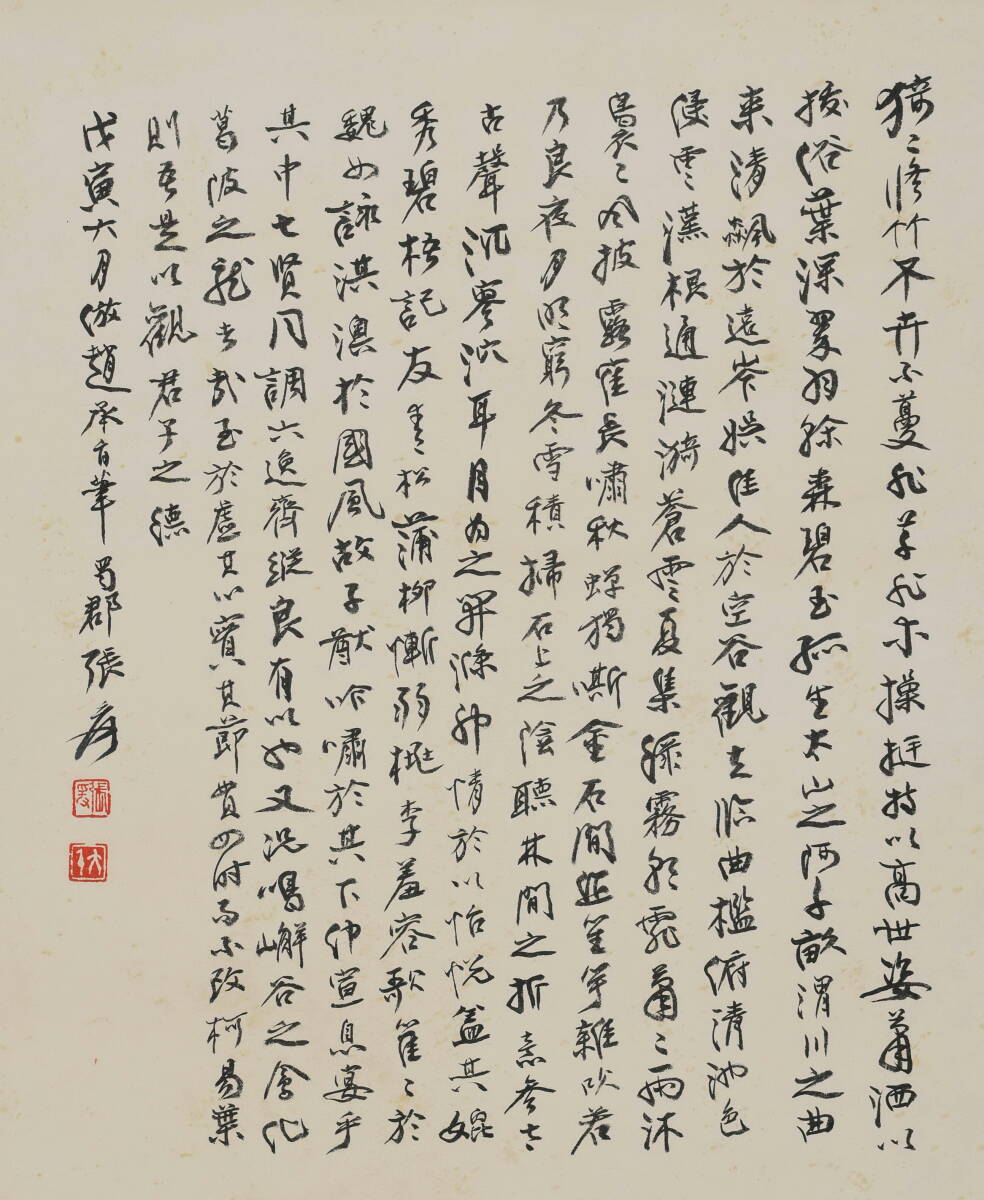 猗〻脩竹不卉不蔓非草非木操挺特以高世姿蕭洒以
拔俗葉深翠羽幹森碧玉孤生太山之阿千畝渭川之曲
来清飈於遠岑娛佳人於空谷觀夫臨曲檻俯清池色
侵雲漢根通漣漪蒼雲夏集綠霧朝霏蕭〻雨沐
裊〻風披露隺長嘯秋蟬獨嘶金石間作笙竽雜吹若
乃良夜月明窮冬雪積掃石上之陰聽林間之折意參太
古聲沉寥泬耳目為之開滌神情於以怡悅盖其媲
秀碧梧託友青松蒲柳慚弱桃李羞容歌籊〻於
魏女詠淇澳於國風故子猷吟嘯於其下仲宣息宴乎
其中七賢同調六逸齊縱良有以也又況鳴嶰谷之鳳化
葛陂之龍者哉至於虛其心實其節貫四时而不改柯易葉
則吾是以觀君子之德
戊寅六月倣趙承旨筆蜀郡張爰
張爰
大千